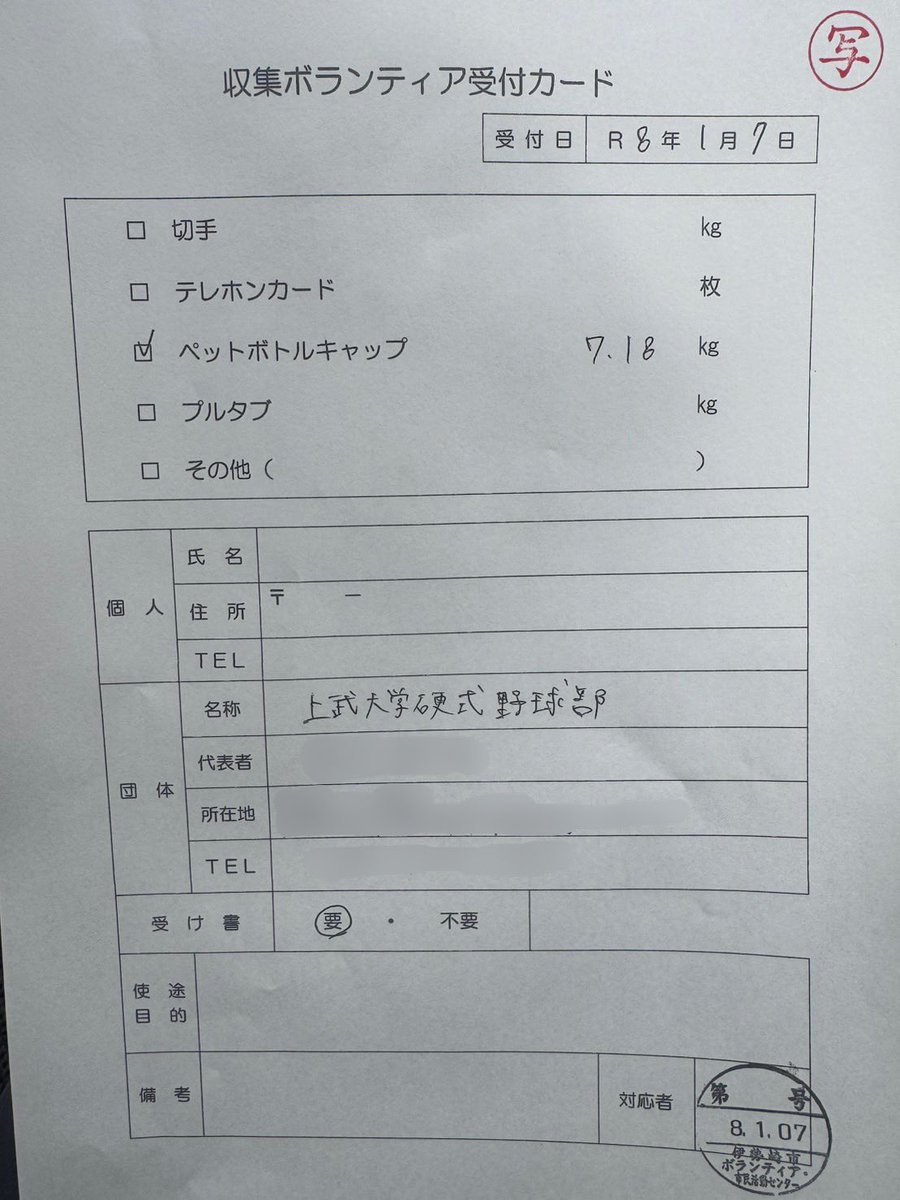 写
収集ボランティア受付カード
受付日 R8年1月7日
□ 切手 kg
□ テレホンカード 枚
☑ ペットボトルキャップ 7.18 kg
□ プルタブ kg
□ その他( )
個人
氏名
住所 〒 −
TEL
団体
名称 上武大学硬式野球部
代表者
所在地
TEL
受け書 要・不要
使途
目的
備考
対応者
第 号
8.1.07
伊勢崎市
ボランティア・
市民活動センター